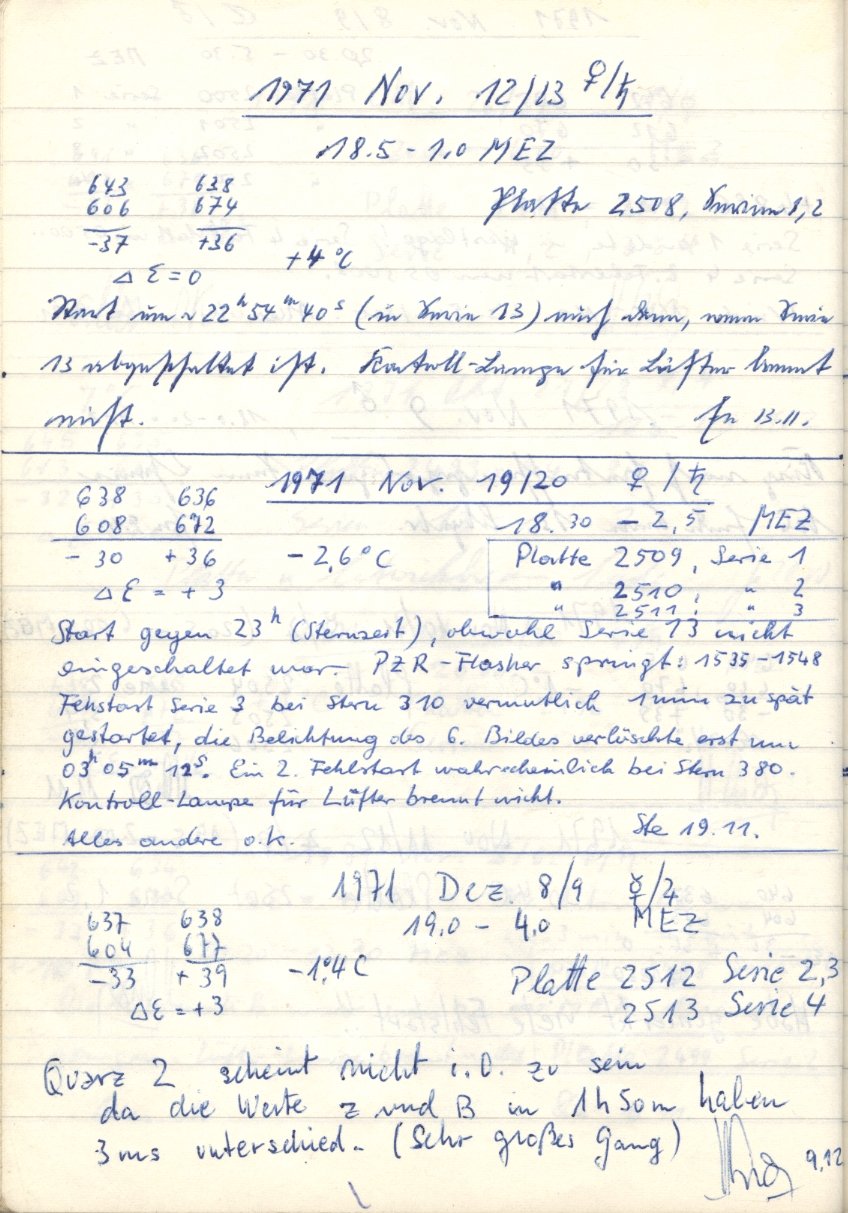 1971 Nov. 12/13 ♀/♄
18.5 - 1.0 MEZ
643 638
606 674
-37 +36
Platte 2508, Serien 1,2
Δ ε = 0
+4°C
Start um ~ 22ʰ54ᵐ40ˢ (in Serie 13) auch dann, wenn Serie
13 abgeschaltet ist. Kontroll-Lampe für Lüfter brennt
nicht. 13.11.
1971 Nov. 19/20 ♀/♄
638 636
608 672
- 30 + 36
18.30 - 2,5 MEZ
- 2,6°C
Platte 2509, Serie 1
" 2510, " 2
" 2511, " 3
Δ ε = + 3
Start gegen 23ʰ (Sternzeit), obwohl Serie 13 nicht
eingeschaltet war. PZR-Flasher springt: 1535-1548
Fehstart Serie 3 bei Stern 310 vermutlich 1min zu spät
gestartet, die Belichtung des 6. Bildes verlöschte erst um
03ʰ05ᵐ12ˢ. Ein 2. Fehlstart wahrscheinlich bei Stern 380.
Kontroll-Lampe für Lüfter brennt nicht.
Alles andere o.k. Ste 19.11.
1971 Dez. 8/9 ☿/♃
637 638
604 677
-33 + 39
19.0 - 4.0 MEZ
-1°,4 C
Platte 2512 Serie 2,3
2513 Serie 4
Δε = +3
Quarz 2 scheint nicht i.O. zu sein
da die Werte z und B in 1h50m haben
3ms unterschied. (Sehr großes Gang)
9.12